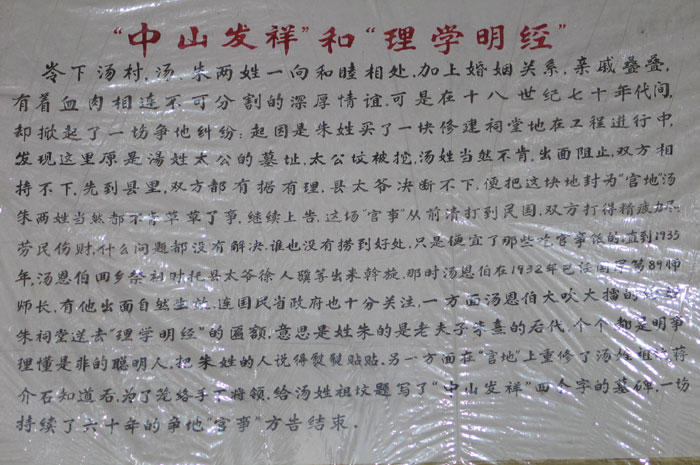 “中山发祥”和“理学明经”
岺下汤村,汤、朱两姓一向和睦相处,加上婚姻关系,亲戚叠叠,
有着血肉相连不可分割的深厚情谊,可是在十八世纪七十年代间,
却掀起了一场争地纠纷:起因是朱姓买了一块修建祠堂地在工程进行中,
发现这里原是湯姓太公的墓址,太公坟被挖,汤姓当然不肯,出面阻止,双方相
持不下,先到县里,双方都有据有理,县太爷决断不下,便把这块地封为“官地”汤
朱两姓当然都不肯草草了事,继续上告,这场“官事”从前清打到民国,双方打得精疲力尽
劳民伤财,什么问题都没有解决,谁也没有捞到好处,只是便宜了那些吃官事饭的直到1935
年,汤恩伯回乡祭祖时把县太爷徐人骥等出来斡旋,那时汤恩伯在1932年已任国军第89师
师长,有他出面自然生效,连国民省政府也十分关注,一方面汤恩伯大吹大擂的
朱祠堂送去“理学明经”的匾额,意思是姓朱的是老夫子朱熹的后代,个个都是明事
理懂是非的聪明人,把朱姓的人说得熨熨贴贴,另一方面在“官地”上重修了汤姓祖坟蒋
介石知道后,为了笼络手下将领,给汤姓祖坟题写了“中山发祥”四个字的墓碑,一场
持续了六十年的争地“官事”方告结束.